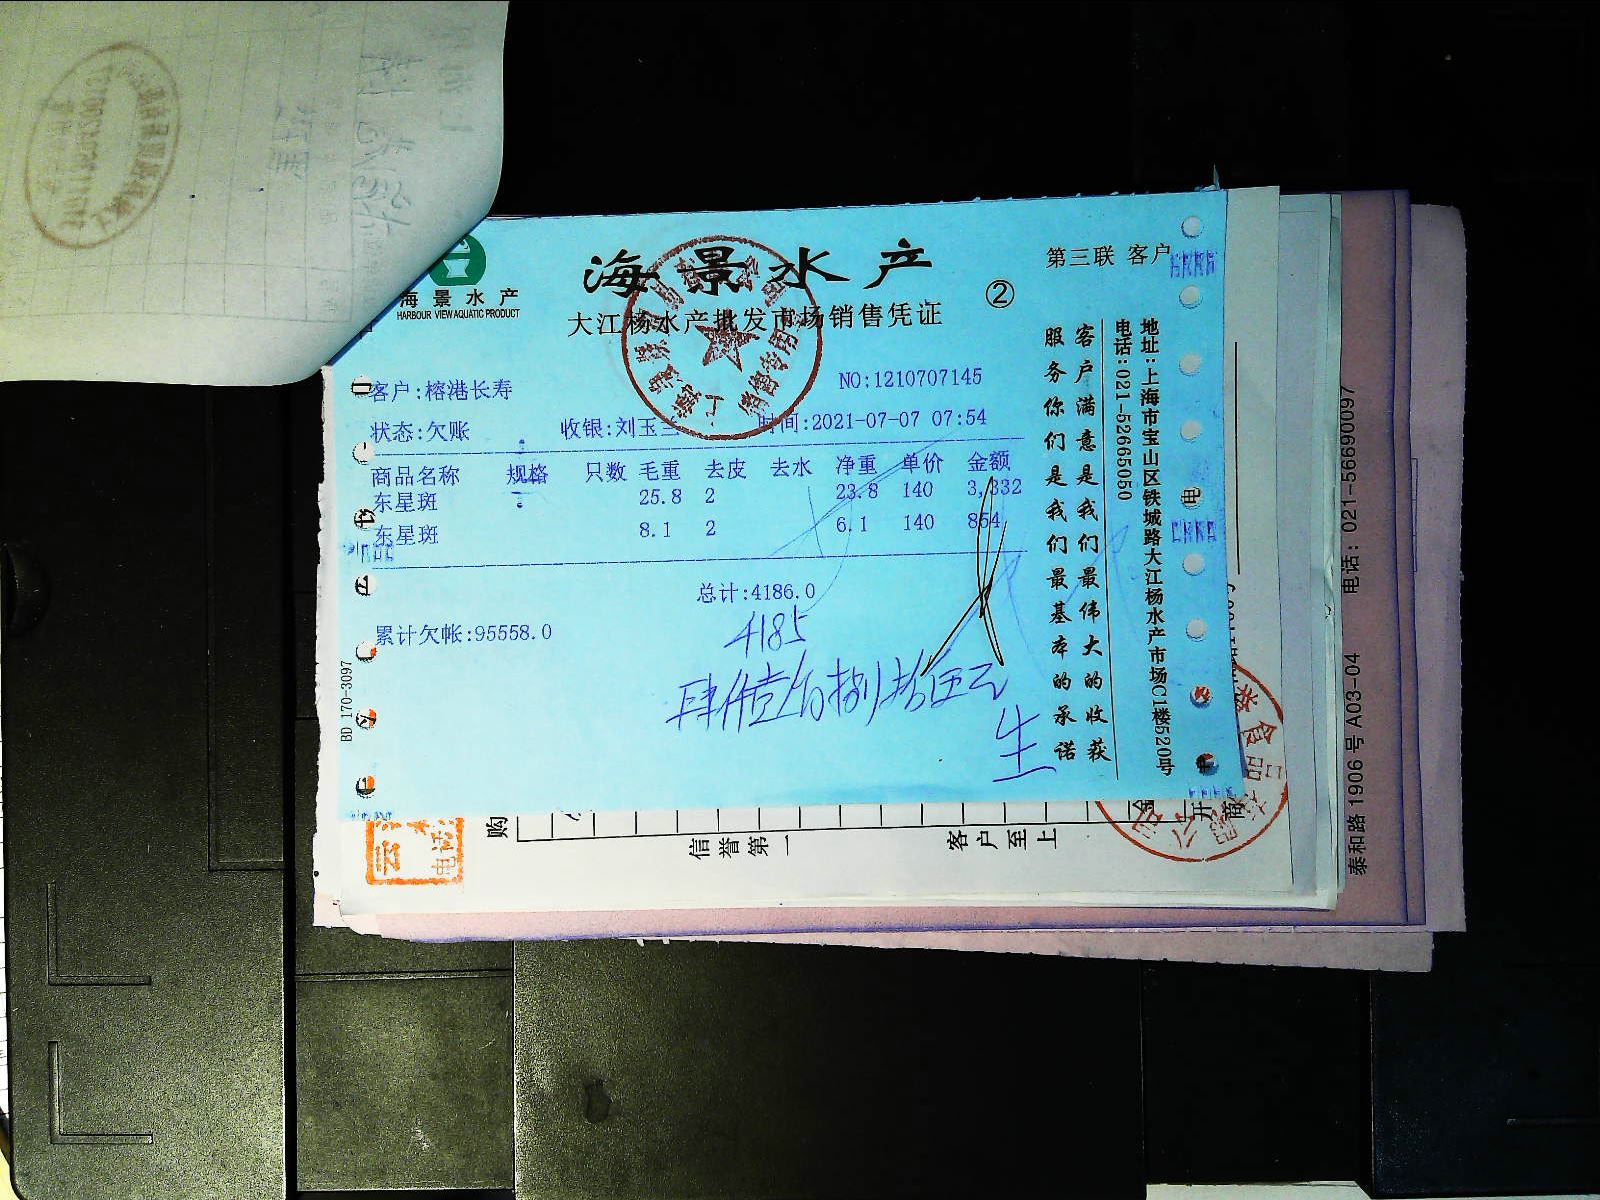 海景水产
HARBOUR VIEW AQUATIC PRODUCT
海景水产
大江杨水产批发市场销售凭证
②
第三联 客户
客户:榕港长寿
NO:1210707145
状态:欠账 收银:刘玉兰 时间:2021-07-07 07:54
商品名称 规格 只数 毛重 去皮 去水 净重 单价 金额
东星斑 25.8 2 23.8 140 3,332
东星斑 8.1 2 6.1 140 854
总计:4186.0
累计欠帐:95558.0
4185
肆仟壹佰捌拾伍元
生
客户满意是我们最伟大的收获
服务你们是我们最基本的承诺
地址:上海市宝山区铁城路大江杨水产市场C1楼520号
电话:021-52665050
BD 170-3097
购
信誉第一
客户至上
电
泰和路 1906 号 A03-04 电话: 021-56690097